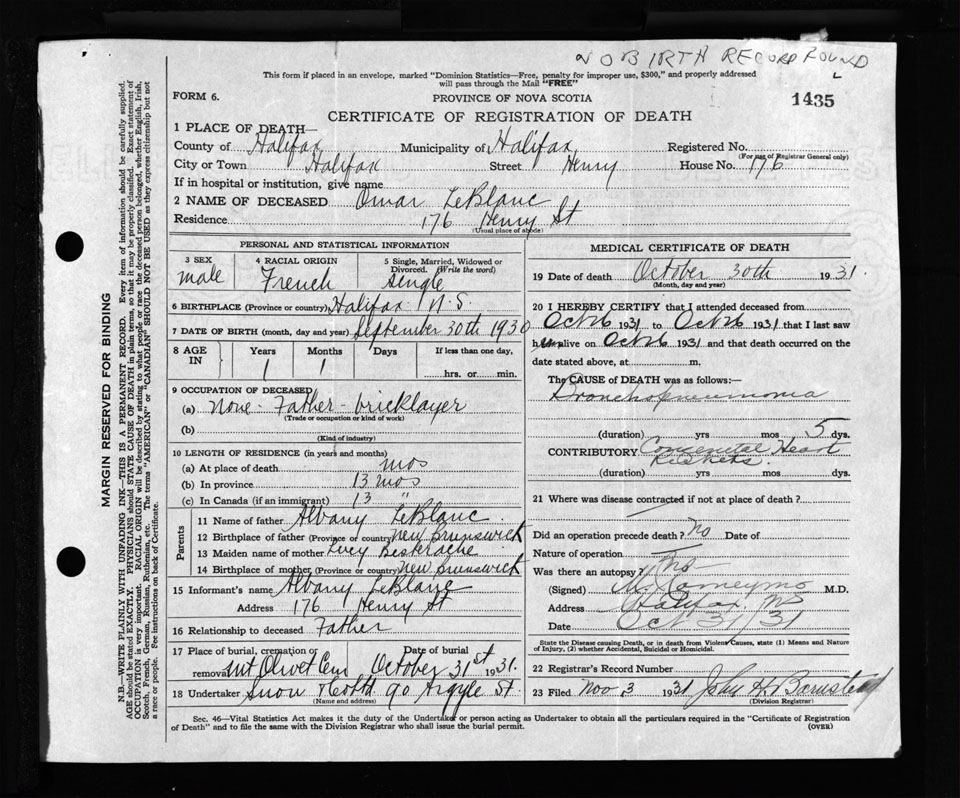 NO BIRTH RECORD FOUND
This form if placed in an envelope, marked "Dominion Statistics—Free, penalty for improper use, $300," and properly addressed
will pass through the Mail "FREE"
FORM 6.
PROVINCE OF NOVA SCOTIA
1435
CERTIFICATE OF REGISTRATION OF DEATH
1 PLACE OF DEATH—
County of Halifax Municipality of Halifax Registered No.
(For use of Registrar General only)
City or Town Halifax Street Henry House No. 176
If in hospital or institution, give name
2 NAME OF DECEASED Omar LeBlanc
Residence 176 Henry St
(Usual place of abode)
PERSONAL AND STATISTICAL INFORMATION
3 SEX male
4 RACIAL ORIGIN French
5 Single, Married, Widowed or Divorced. (Write the word) single
6 BIRTHPLACE (Province or country) Halifax N.S.
7 DATE OF BIRTH (month, day and year) September 30th 1930
8 AGE IN Years Months Days If less than one day,
1 1 hrs. or min.
9 OCCUPATION OF DECEASED
(a) None - Father - bricklayer
(Trade or occupation or kind of work)
(b)
(Kind of industry)
10 LENGTH OF RESIDENCE (in years and months)
(a) At place of death mos
(b) In province 13 mos
(c) In Canada (if an immigrant) 13 "
Parents
11 Name of father Albany LeBlanc
12 Birthplace of father (Province or country) New Brunswick
13 Maiden name of mother Lucy
14 Birthplace of mother (Province or country) New Brunswick
15 Informant's name Albany LeBlanc
Address 176 Henry St
16 Relationship to deceased Father
17 Place of burial, cremation or
removal Mt Olivet Cem October 31st 1931.
18 Undertaker Snow & Co Ltd 90 Argyle St.
(Name and address)
MEDICAL CERTIFICATE OF DEATH
19 Date of death October 30th 1931
(Month, day and year)
20 I HEREBY CERTIFY that I attended deceased from
Oct 26 1931 to Oct 26 1931 that I last saw
him alive on Oct 26 1931 and that death occurred on the
date stated above, at m.
The CAUSE of DEATH was as follows:—
Bronchopneumonia
(duration) yrs mos 5 dys.
CONTRIBUTORY Congenital Heart
Rickets.
(duration) yrs mos dys.
21 Where was disease contracted if not at place of death?
Did an operation precede death? No Date of
Nature of operation
Was there an autopsy? no
(Signed) M.D.
Address Halifax, NS
Date Oct 31/31
State the Disease causing Death, or in death from Violent Causes, state (1) Means and Nature
of Injury, (2) whether Accidental, Suicidal or Homicidal.
22 Registrar's Record Number
23 Filed Nov 3 1931 John H. Barnstead
(Division Registrar)
Sec. 46—Vital Statistics Act makes it the duty of the Undertaker or person acting as Undertaker to obtain all the particulars required in the "Certificate of Registration
of Death" and to file the same with the Division Registrar who shall issue the burial permit.
(OVER)
MARGIN RESERVED FOR BINDING
N.B.—WRITE PLAINLY WITH UNFADING INK—THIS IS A PERMANENT RECORD. Every item of information should be carefully supplied.
AGE should be stated EXACTLY. PHYSICIANS should STATE CAUSE OF DEATH in plain terms, so that it may be properly classified. Exact statement of
OCCUPATION is very important. RACIAL ORIGIN will be described by stating to what people or race the deceased person belonged, whether English, Irish,
Scotch, French, German, Russian, Ruthenian, etc. The terms "AMERICAN" or "CANADIAN" SHOULD NOT BE USED as they express citizenship but not
a race or people. See instructions on back of Certificate.